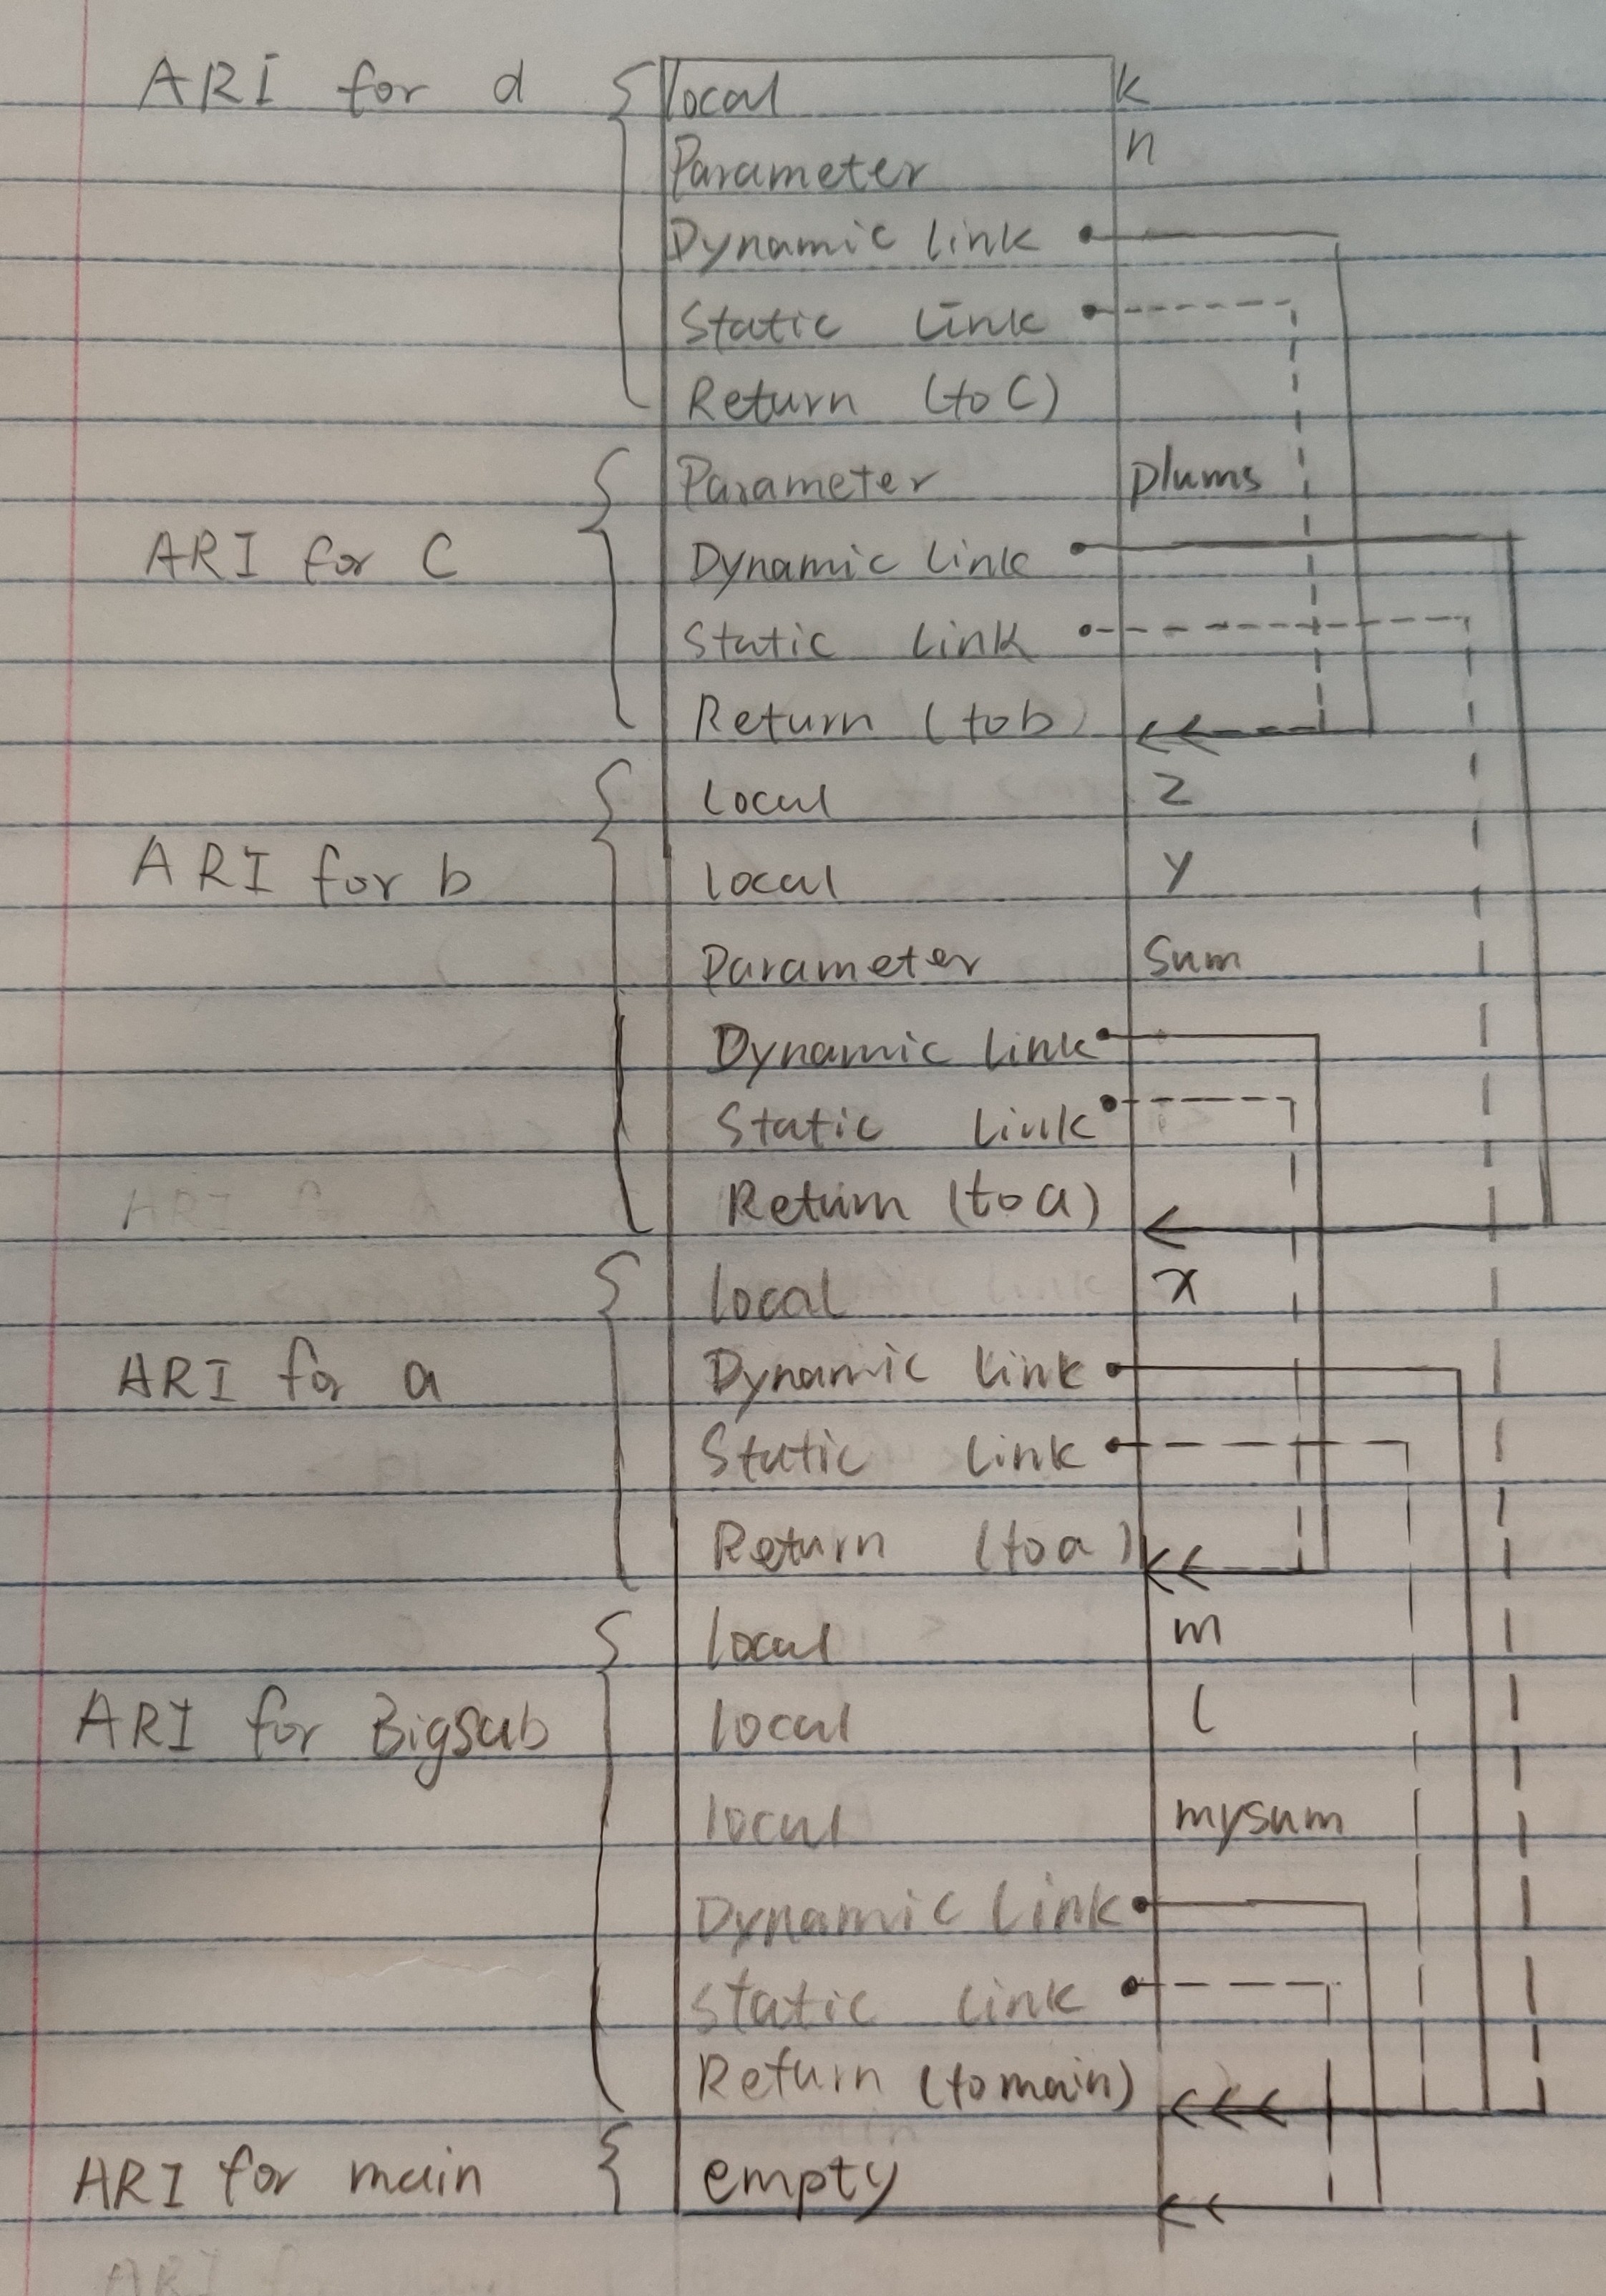 ARI for d local k
n
Parameter
Dynamic link
Static link
Return (to C)
Parameter plums
ARI for C Dynamic link
Static link
Return (to b)
local z
ARI for b local y
Parameter Sum
Dynamic link
Static link
Return (to a)
ARI for
local x
ARI for a Dynamic link
Static link
Return (to a)
local m
ARI for Bigsub local l
local mysum
Dynamic link
Static link
Return (to main)
ARI for main empty
ARI for